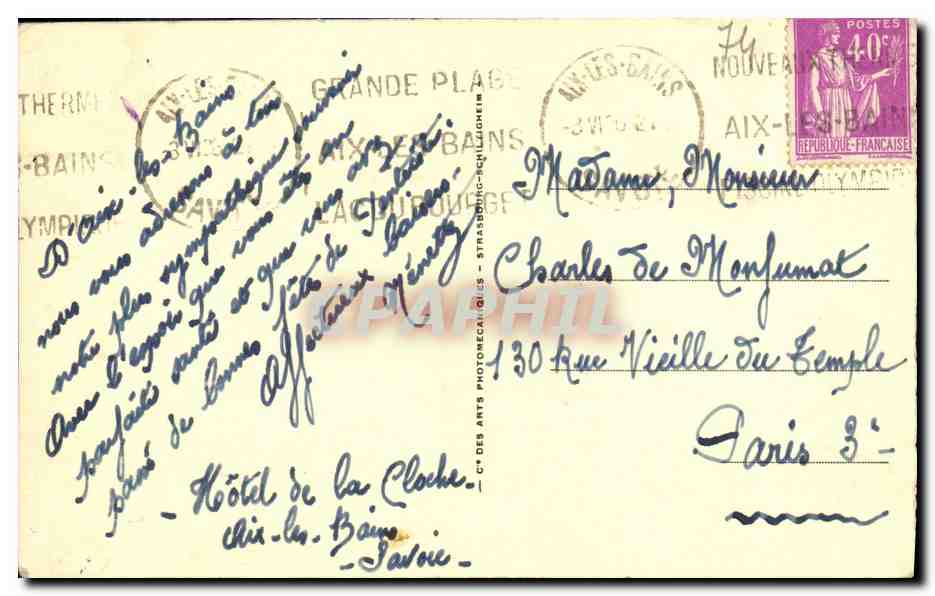 74
POSTES
40c
REPUBLIQUE-FRANCAISE
THERME
-BAINS
OLYMPI
AIX-LES-BAINS
SAVOIE
GRANDE PLAGE
AIX-LES-BAINS
LAC DU BOURGET
AIX-LES-BAINS
SAVOIE
NOUVEAUX THERM
AIX-LES-BAINS
OLYMPI
D'Aix-les-Bains
nous vous adressons à ton
notre plus sympathique
Avec l'espoir que vous êtes en
parfaite santé et que vous avez
passé de bonnes fêtes de Pentecôte.
Affectueux baisers.
Ménette
- Hôtel de la Cloche -
Aix-les-Bains
- Savoie -
Cie DES ARTS PHOTOMECANIQUES - STRASBOURG-SCHILTIGHEIM
Madame, Monsieur
Charles de Monfumat
130 Rue Vieille du Temple
Paris 3e
CPAPHIL